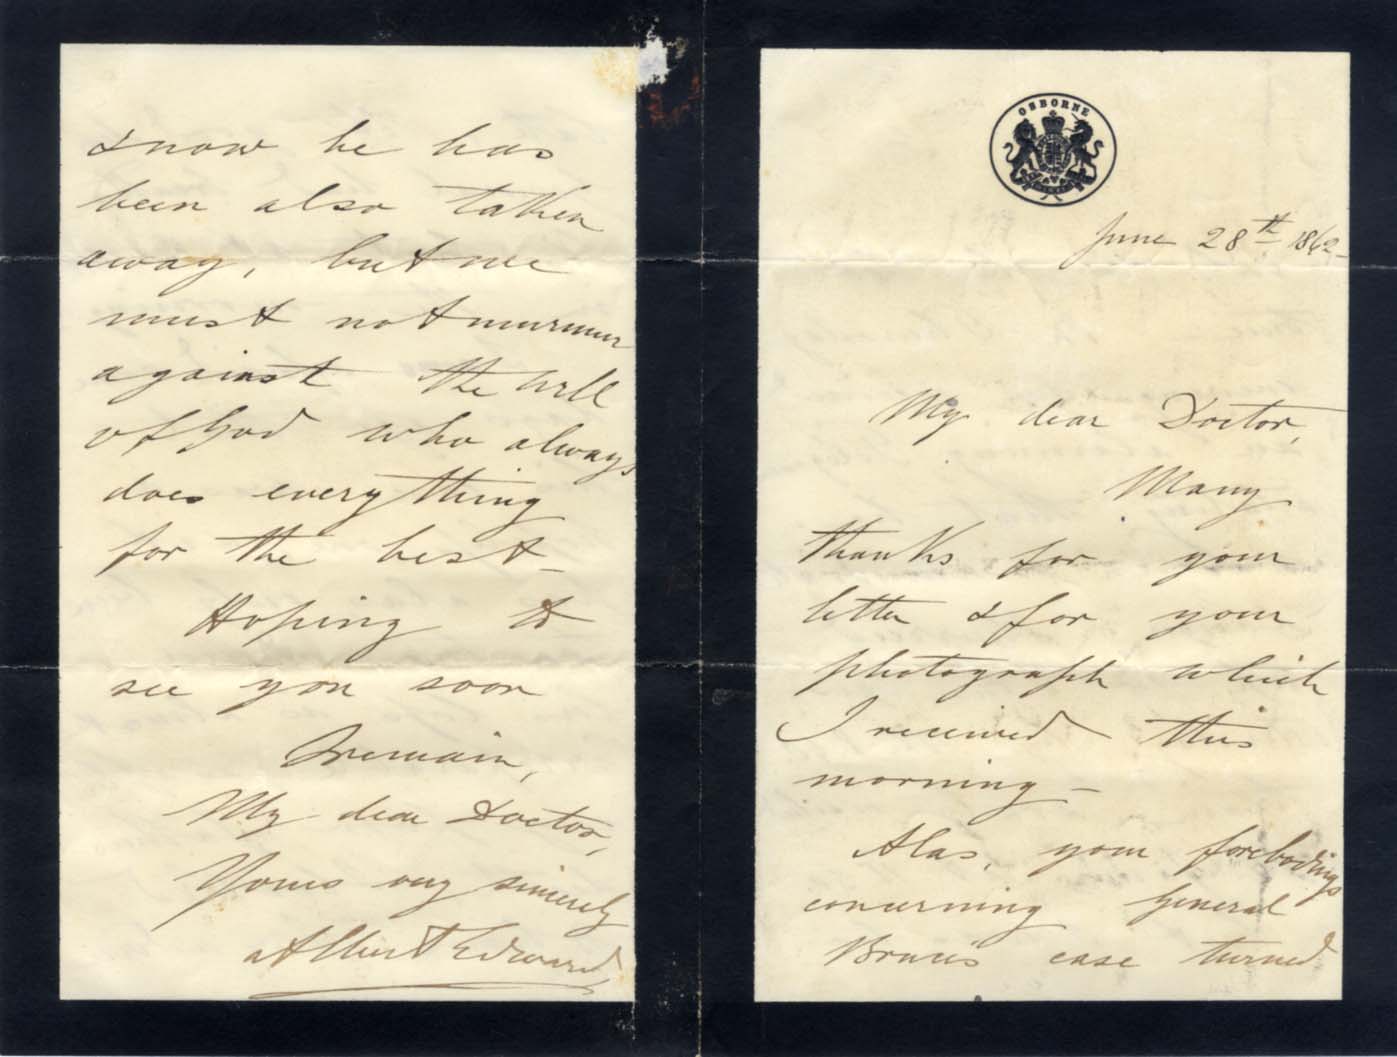 OSBORNE
June 28th 1862-
My dear Doctor,
Many
thanks for your
letter & for your
photograph which
I received this
morning -
Alas, your forebodings
concerning General
Bruce's case turned
& now he has
been also taken
away, but we
must not murmur
against the will
of God who always
does everything
for the best -
Hoping to
see you soon
I remain,
My dear Doctor,
Yours very sincerely
Albert Edward